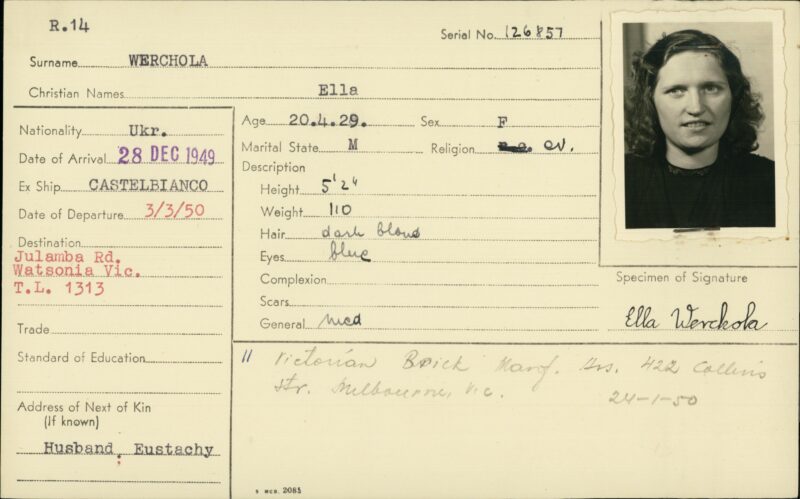 R.14
Serial No. 126857
Surname WERCHOLA
Christian Names Ella
Nationality Ukr.
Date of Arrival 28 DEC 1949
Ex Ship CASTELBIANCO
Date of Departure 3/3/50
Destination
Julamba Rd.
Watsonia Vic.
T.L. 1313
Trade
Standard of Education
Address of Next of Kin
(If known)
Husband, Eustachy
Age 20.4.29. Sex F
Marital State M Religion ev.
Description
Height 5'2"
Weight 110
Hair dark blond
Eyes blue
Complexion
Scars
General med
Specimen of Signature
Ella Werchola
11 Victorian Brick Manf. Ass. 422 Collins
Str. Melbourne, Vic. 24-1-50
5 MCR. 2085